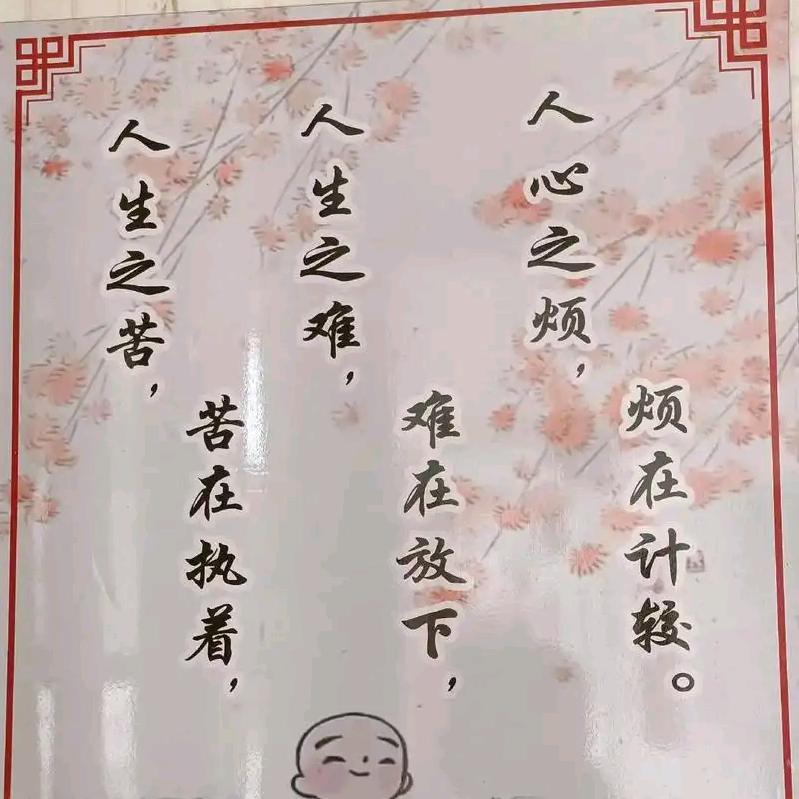 人生之苦，
苦在执着，
人生之难，
难在放下，
人心之烦，
烦在计较。